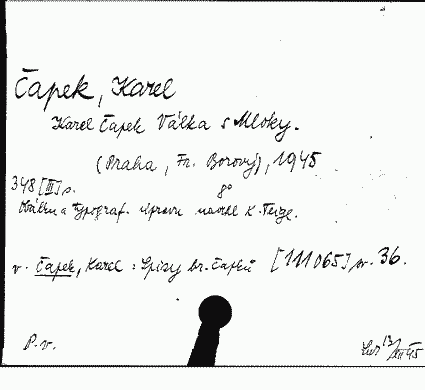 Čapek, Karel
Karel Čapek Válka s Mloky.
(Praha, Fr. Borový), 1945
348 [III] s. 8°
Obálku a typograf. úpravu navrhl K. Teige.
v. Čapek, Karel: Spisy br. Čapků [111065] sv. 36.
P.v. 13/XII 45